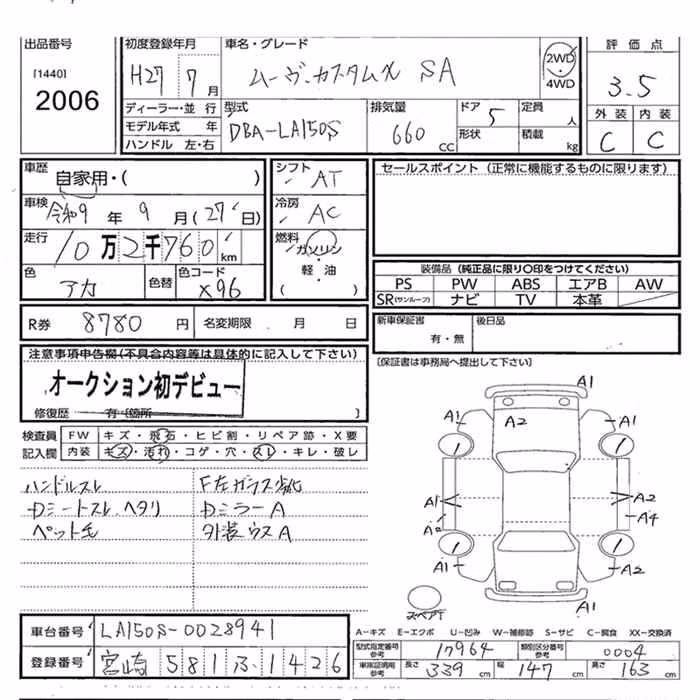 出品番号
[1440]
2006
初度登録年月
H27 7月
車名・グレード
ムーヴ カスタムX SA
2WD
・
4WD
評価点
3.5
外装 内装
C C
ディーラー・並行
モデル年式 年
ハンドル 左・右
型式
DBA-LA150S
排気量
660 CC
ドア 5
形状
定員 人
積載 kg
車歴
自家用・( )
車検
令和9年9月(27日)
走行
10万2千760km
色
アカ
色替
色コード
X96
シフト
AT
冷房
AC
燃料
ガソリン
・
軽・油
( )
セールスポイント (正常に機能するものに限ります)
装備品 (純正品に限り〇印をつけてください)
PS PW ABS エアB AW
SR(サンルーフ) ナビ TV 本革
R券 8780円 名変期限 月 日
新車保証書
有・無
後日品
[保証書は事務局へ提出して下さい]
注意事項申告欄(不具合内容等は具体的に記入して下さい)
オークション初デビュー
修復歴 有 [箇所 ]
検査員 FW キズ・飛石・ヒビ割・リペア跡・X要
記入欄 内装 キズ・汚れ・コゲ・穴・スレ・キレ・破レ
ハンドルスレ
Dシートスレ、ヘタリ
ペット毛
F左ガラス劣化
Dミラー A
外装ウスA
A1
A1 A2 A1
A1 A2
A4
A1 A2
A1
スペアT
車台番号 LA150S-0028941
登録番号 宮崎 581 ふ 1426
A-キズ E-エクボ U-凹み W-補修跡 S-サビ C-腐食 XX-交換済
型式指定番号 参考 17964 類別区分番号 参考 0004
車庫証明用 参考 長さ 339cm 幅 147cm 高さ 163cm